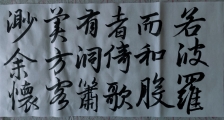 渺余懷
美方客
有洞簫
者倚歌
而和般
若波羅